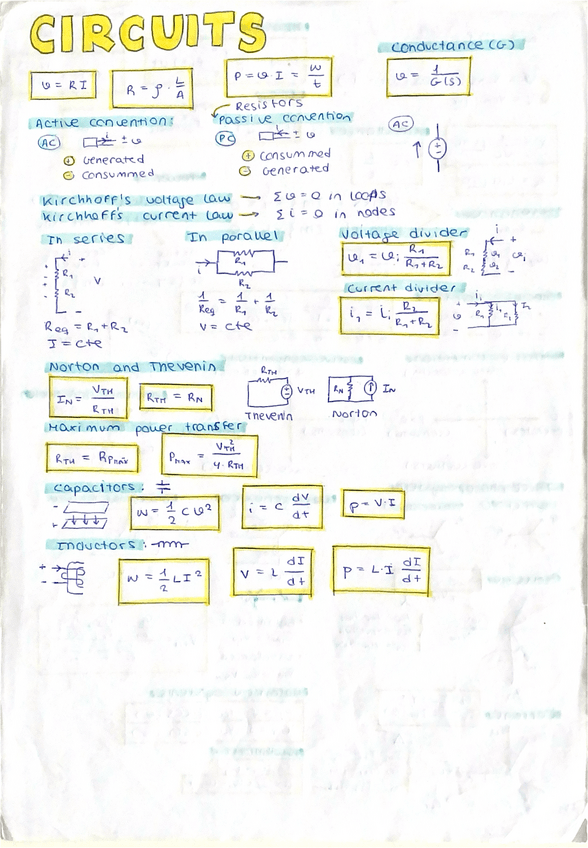 CIRCUITS
Conductance (G)
υ = R I
R = ρ · L/A
P = υ I = W/t
υ = 1/G(S)
Resistors
Active convention:
Passive convention
AC
i ± υ
PC
i ± υ
AC
+ Generated
- Consummed
+ Consummed
- Generated
Kirchhoff's voltage law → Συ = 0 in loops
Kirchhoff's current law → Σi = 0 in nodes
In series
In parallel
Voltage divider
υ₁ = υᵢ R₁/(R₁+R₂)
R₁
R₂
V
i
R₁
R₂
i
R₁ υ₁
R₂ υ₂
υᵢ
Req = R₁+R₂
I = cte
1/Req = 1/R₁ + 1/R₂
V = cte
Current divider
i₁ = iᵢ R₂/(R₁+R₂)
Norton and Thevenin
I_N = V_TH/R_TH
R_TH = R_N
R_TH
V_TH
Thevenin
R_N
I_N
Norton
Maximum power transfer
R_TH = R_Pmáx
P_max = V_TH²/(4·R_TH)
Capacitors:
W = 1/2 C υ²
i = C dV/dt
p = V·I
Inductors:
W = 1/2 L I²
V = L dI/dt
p = L·I dI/dt